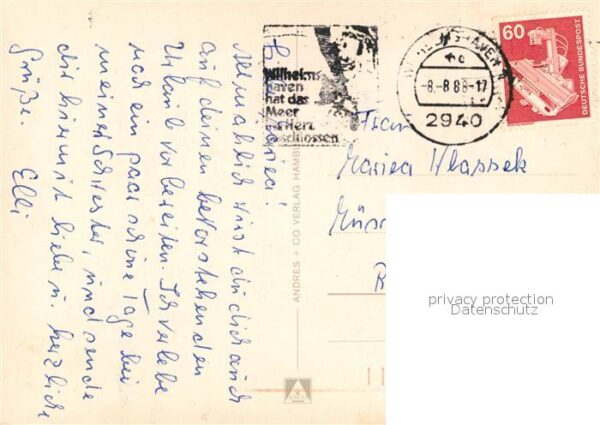 L. Maria!
Allmählich wirst du dich auch
auf deinen bevorstehenden
Urlaub vorbereiten. Ich verlebe
noch ein paar schöne Tage bei
meiner Schwester, und sende
dir hiermit liebe u. herzliche
Grüße.
Elli
Wilhelms
haven
hat das
Meer
ins Herz
geschlossen
WILHELMSHAVEN
-8.-8 88-17
2940
60
DEUTSCHE BUNDESPOST
Frau
Marica Wlassek
ANDRES + CO VERLAG HAMBU
privacy protection
Datenschutz